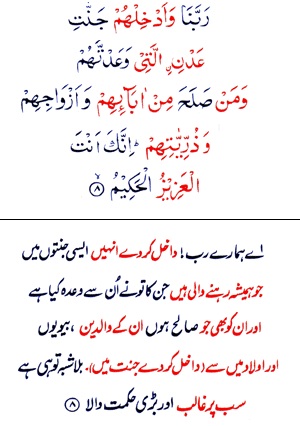 رَبَّنَا وَاَدْخِلْهُمْ جَنّٰتِ
عَدْنِ ۣالَّتِيْ وَعَدْتَّهُمْ
وَمَنْ صَلَحَ مِنْ اٰبَآئِهِمْ وَاَزْوَاجِهِمْ
وَذُرِّيّٰتِهِمْ ؕ اِنَّكَ اَنْتَ
الْعَزِيْزُ الْحَكِيْمُ ۙ﴿۸﴾
اے ہمارے رب! داخل کر دے انہیں ایسی جنتوں میں
جو ہمیشہ رہنے والی ہیں جن کا تو نے اُن سے وعدہ کیا ہے
اور ان کو بھی جو صالح ہوں ان کے والدین ، بیویوں
اور اولاد میں سے (داخل کر دے جنت میں)۔ بلاشبہ تو ہی ہے
سب پر غالب اور بڑی حکمت والا ﴿۸﴾